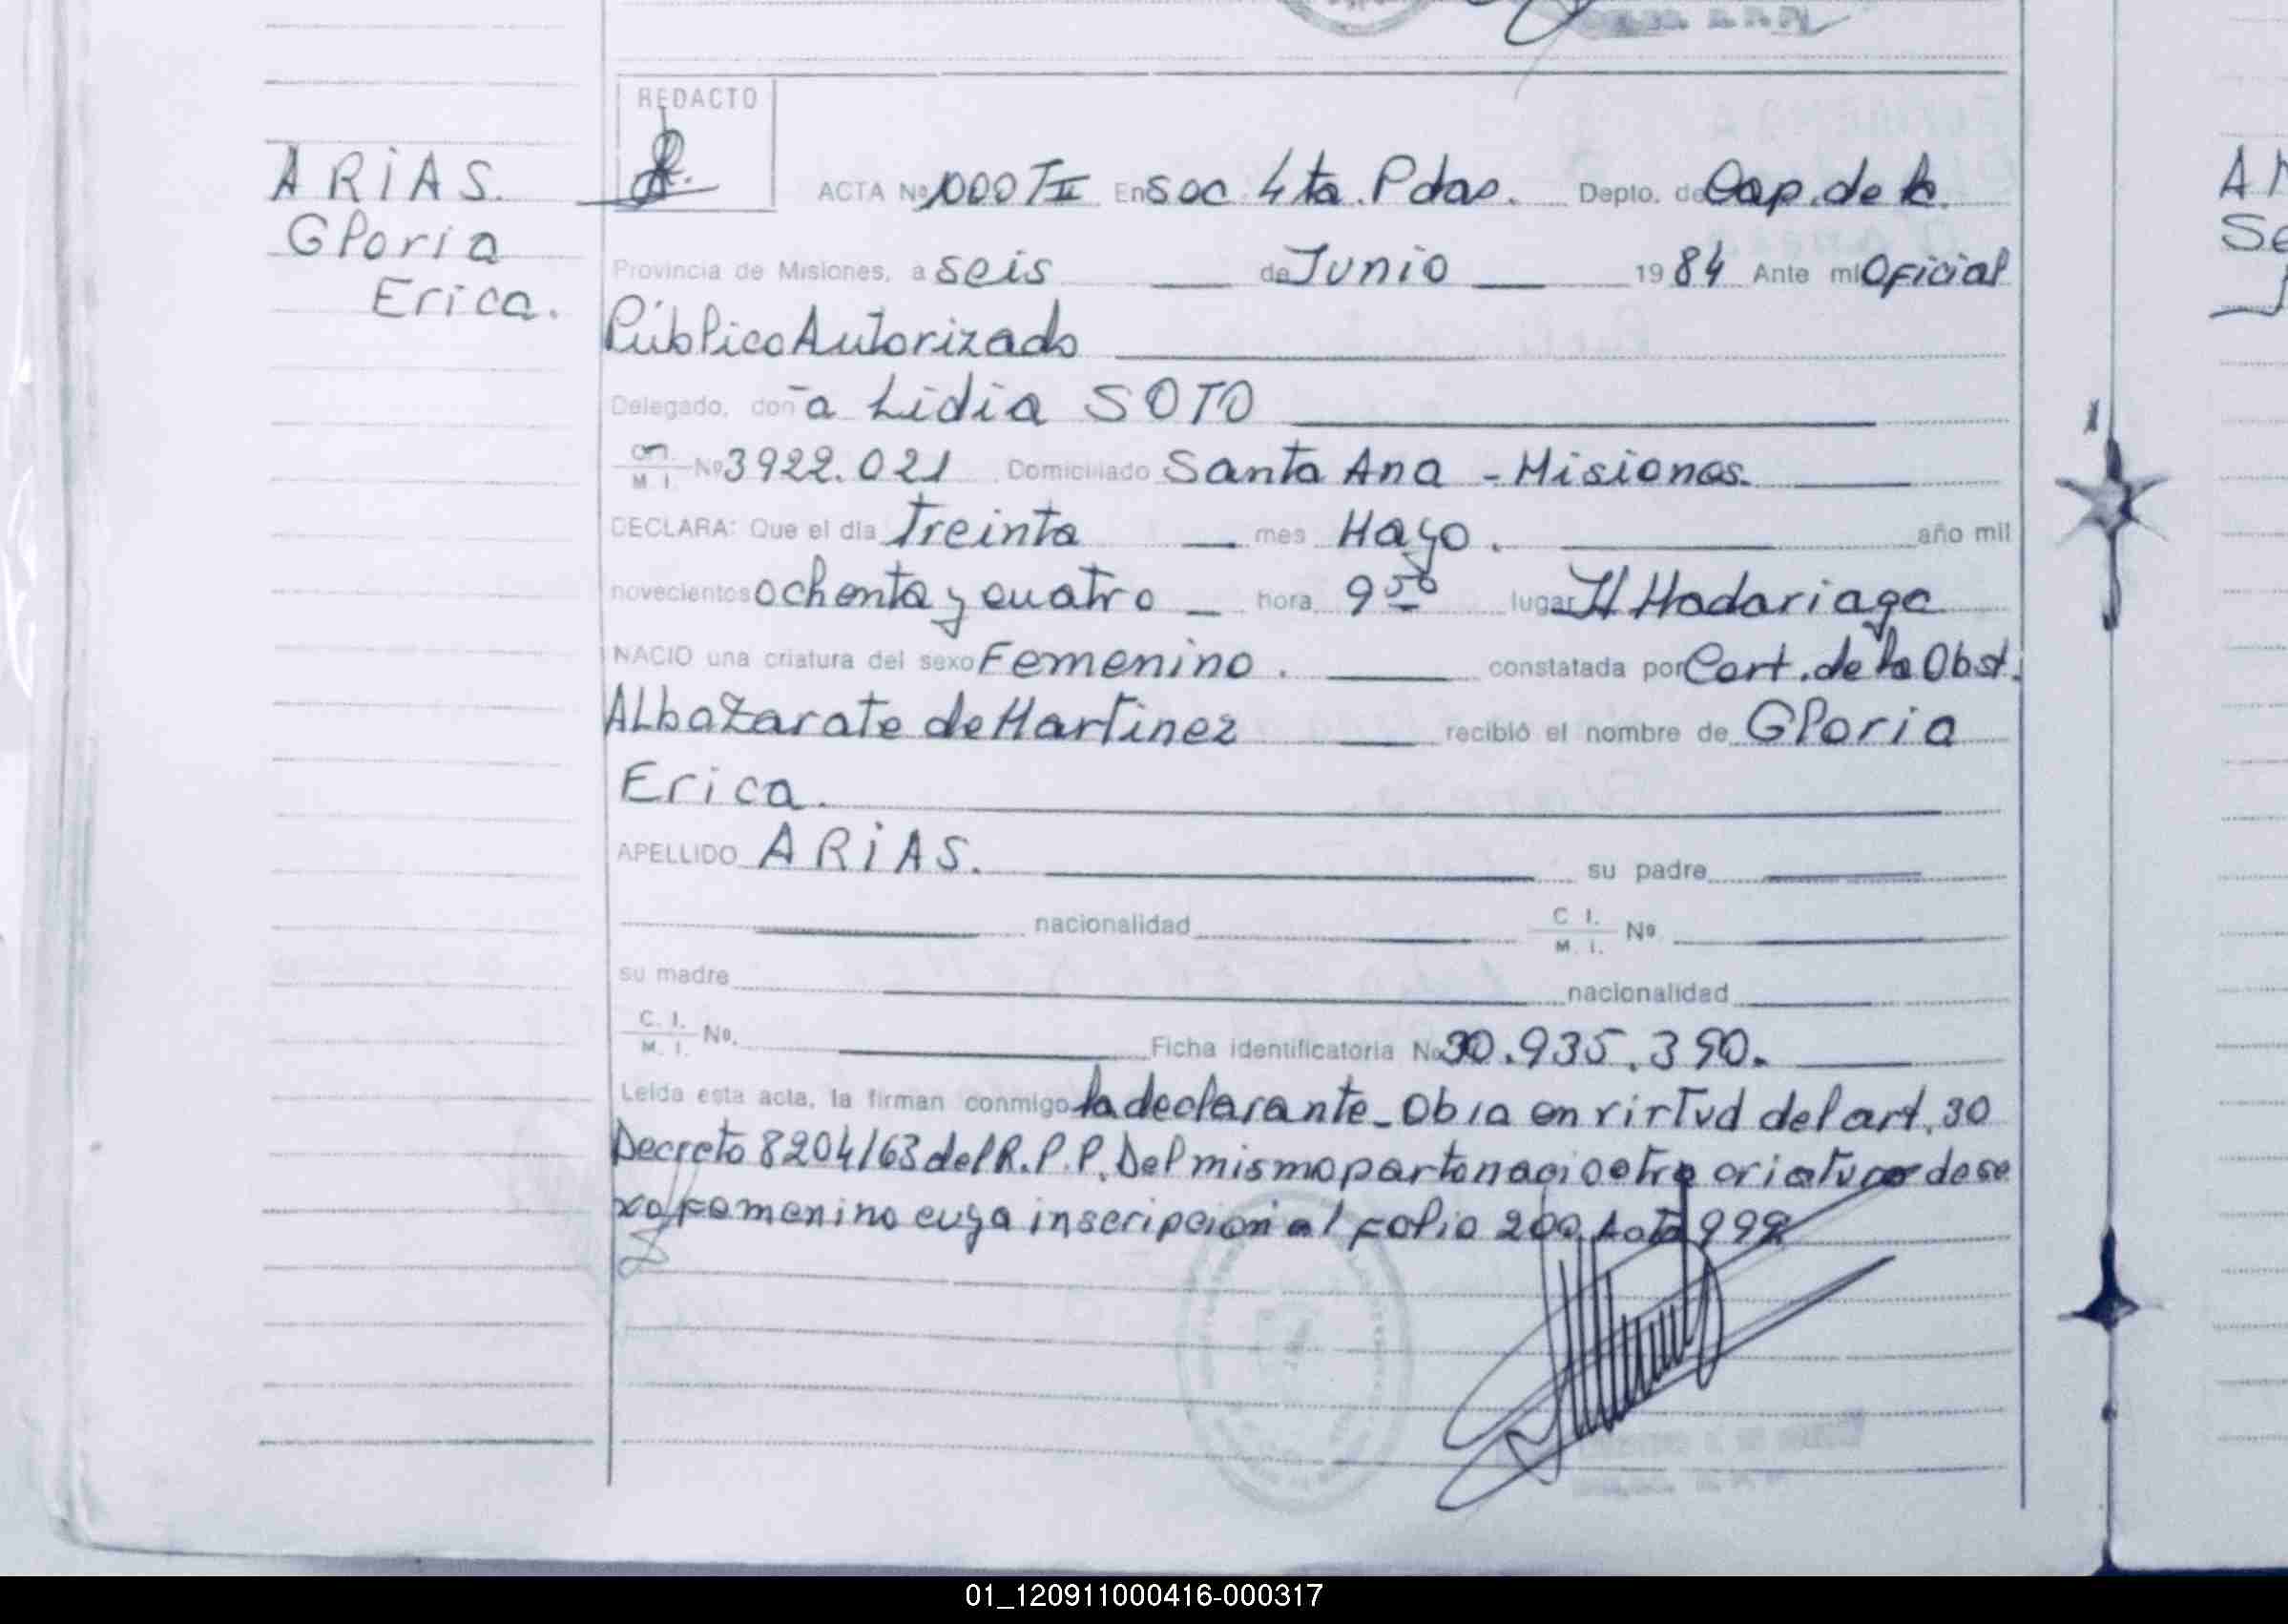 REDACTO
ARIAS.
Gloria
Erica.
ACTA Nº 1000 TII En Sec. 4ta. Pdas. Depto. de Cap. de la
Provincia de Misiones, a seis de Junio 1984 Ante mi Oficial
Público Autorizado
Delegado, doña Lidia SOTO
C.I. M.I. Nº 3922.021 Domiciliado Santa Ana - Misiones.
DECLARA: Que el día Treinta mes Mayo. año mil
novecientos ochenta y cuatro hora 9 50 lugar H Madariaga
NACIO una criatura del sexo Femenino. constatada por Cert. de la Obst.
Alba Zarate de Martinez recibió el nombre de Gloria
Erica.
APELLIDO ARIAS. su padre
nacionalidad C. I. M. I. Nº
su madre nacionalidad
C. I. M. I. Nº. Ficha identificatoria Nº 30.935.390.
Leída esta acta, la firman conmigo la declarante - Obra en virtud del art. 30
Decreto 8204/63 del R.P.P. Del mismo parto nacio otra criatura de se
xo femenino cuya inscripcion al folio 200 Acta 999
01_120911000416-000317